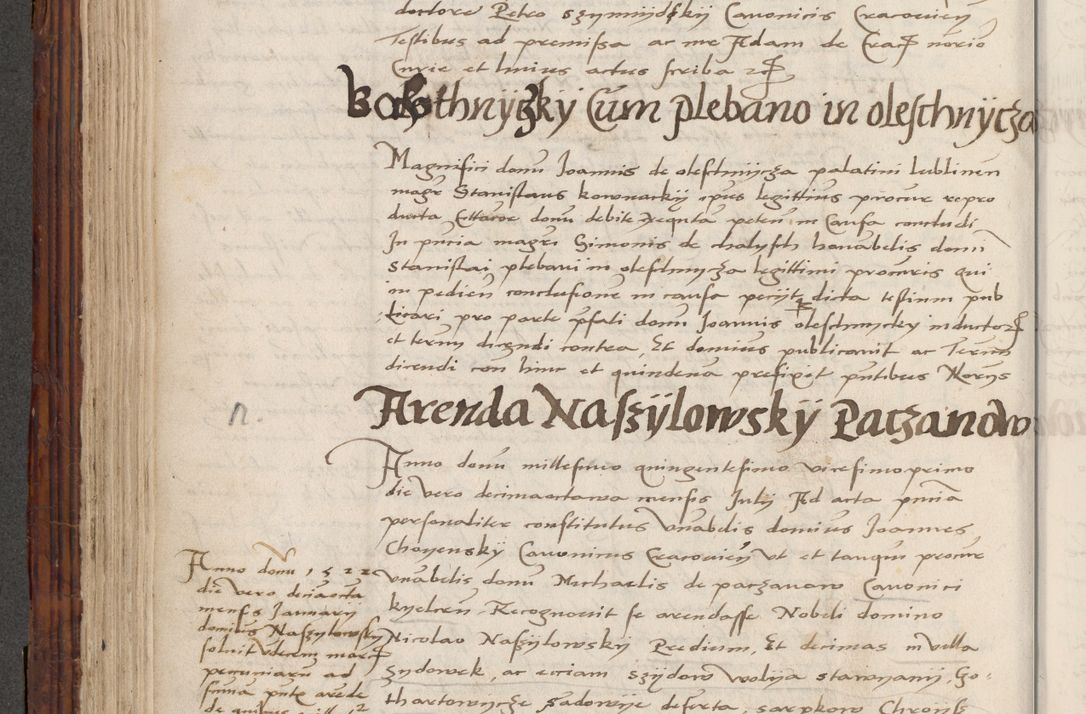 doctore Petro szymyjdfkij Canonicis Cracovien
Testibus ad premissa ac me Adam de Crac norio
Curie et huius actus scriba
thnyczky Cum plebano in oleschnycza
Magnifici domi Joannis de oleschnijcza palatini lublinen
magr Stanislaus kownackij ipius legittius procur repro
ducta domi debite peten in causa concludi
In pncia magri Simonis de chalysch honabelis domi
Stanislai plebani in oleschnycza legittimi procuris qui
in pedien conclusione in causa dicta testium pub
licari pro parte pfati domi Joannis oleschnycky inductor
et termi dicendi contra Et domius publicavit ac Term
dicendi con hinc et quindena prefixit pntibus
Arenda Naszylowsky Paczanow
n.
Anno domi millesimo quingentesimo vicesimo primo
die vero decimaoctava mensis Julij Ad acta pnia
personaliter constitutus vnabelis domius Joannes
Choyenskij Canonicus Cracovien Vt et tanqm procur
vnabelis domi Michaelis de paczanow Canonici
kyelcen Recognovit se arendasse Nobili domino
Nicolao Naszylowskij Predium, Et decimas in villa
zydowek, ac ecciam szydow wolya stawyany, Go
thartowycze sadowije deserta, sarpkow
Anno domi 1522
die vero deciaocta
mensis Januarij
domius Naszylowsky
solvit decem marc
pecuniarum ad
sumā pnte arēde
de quibus